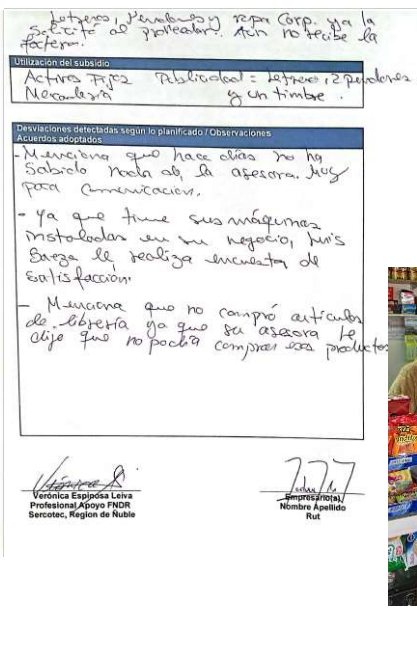 Letreros, Pendones y ropa Corp. ya la
Solicitó al proveedor. Aún no recibe la
factura.
Utilización del subsidio
Activos Fijos Publicidad = Letrero, 2 pendones
Mercadería y un timbre.
Desviaciones detectadas según lo planificado / Observaciones
Acuerdos adoptados
- Menciona que hace días no ha
Sabido nada de la asesora. Muy
poca Comunicación.
- Ya que tiene sus máquinas
instaladas en su negocio,
se le realiza encuesta de
Satisfacción.
- Menciona que no compró artículos
de librería ya que su asesora le
dijo que no podía comprar esos productos
Verónica Espinosa Leiva
Profesional Apoyo FNDR
Sercotec, Region de Ñuble
Empresario(a)
Nombre Apellido
Rut